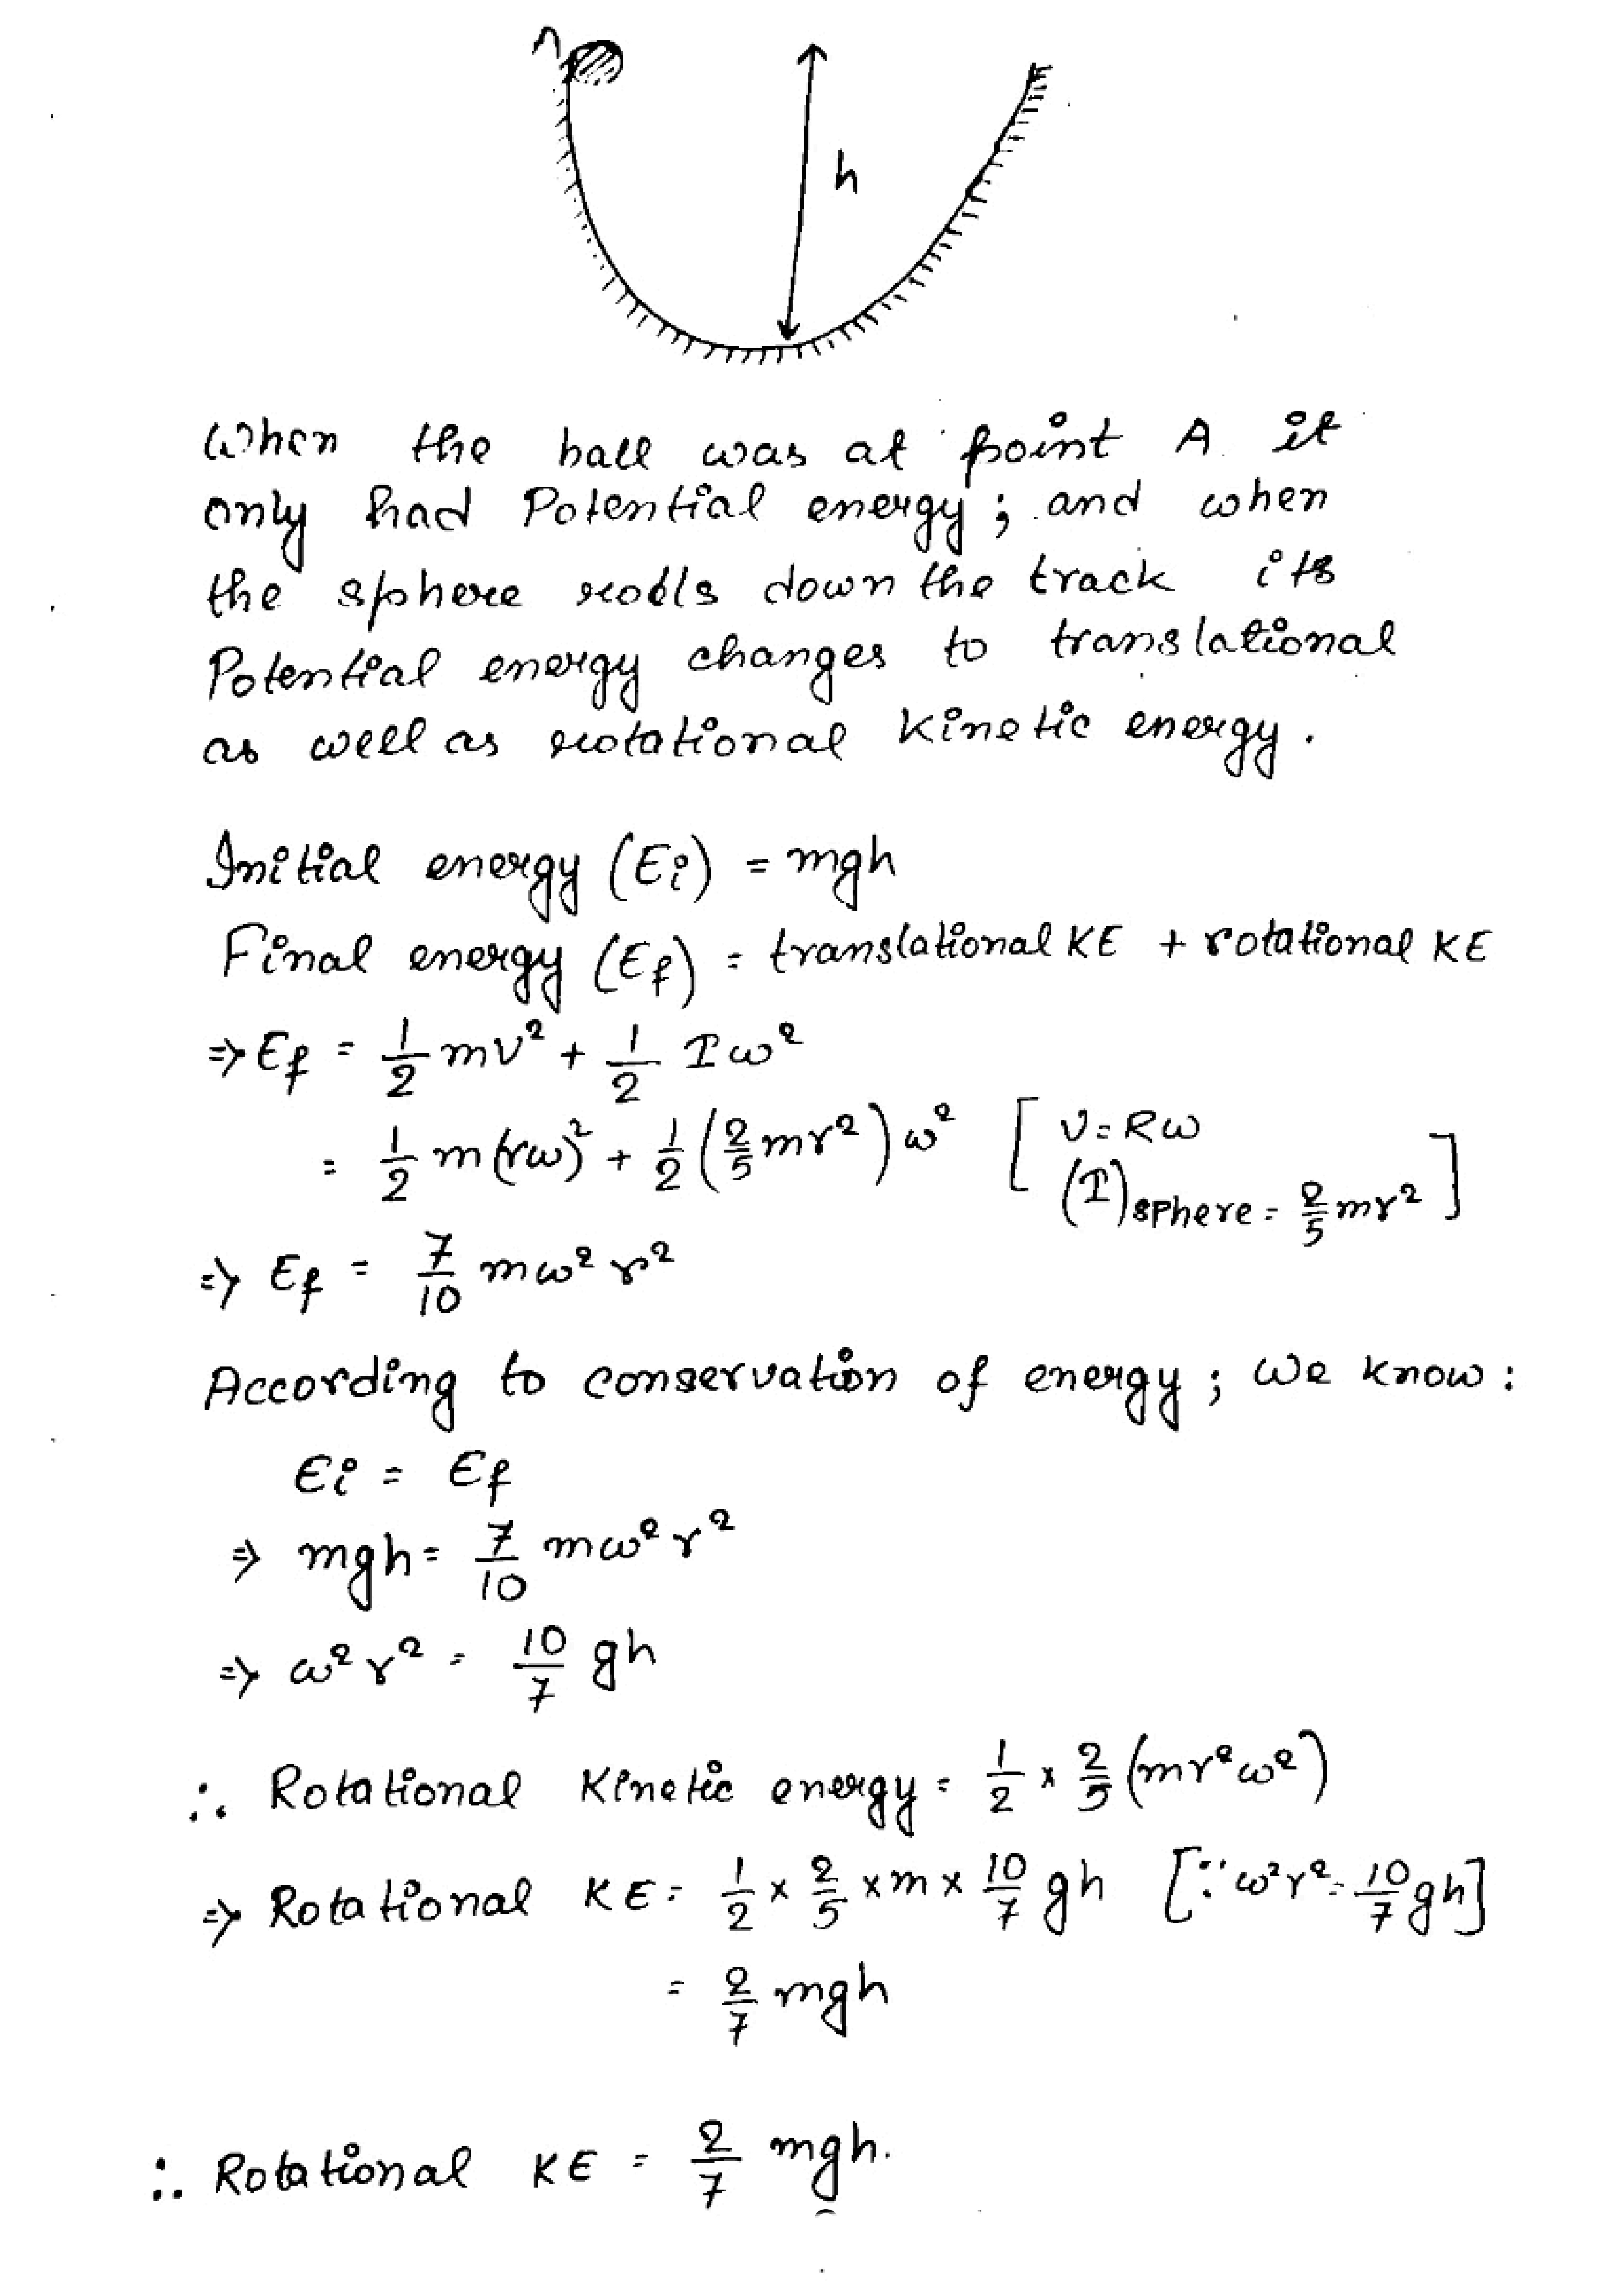 A
h
When the ball was at point A it
only had Potential energy; and when
the sphere rolls down the track its
Potential energy changes to translational
as well as rotational Kinetic energy.
Initial energy (Ei) = mgh
Final energy (Ef) = translational KE + rotational KE
⇒ Ef = 1/2 mv² + 1/2 Iω²
= 1/2 m(rω)² + 1/2 (2/5 mr²) ω² [ v = Rω
(I)sphere = 2/5 mr² ]
⇒ Ef = 7/10 mω² r²
According to conservation of energy; we know:
Ei = Ef
⇒ mgh = 7/10 mω² r²
⇒ ω² r² = 10/7 gh
∴ Rotational Kinetic energy = 1/2 × 2/5 (mr²ω²)
⇒ Rotational KE = 1/2 × 2/5 × m × 10/7 gh [∵ ω²r² = 10/7 gh]
= 2/7 mgh
∴ Rotational KE = 2/7 mgh.